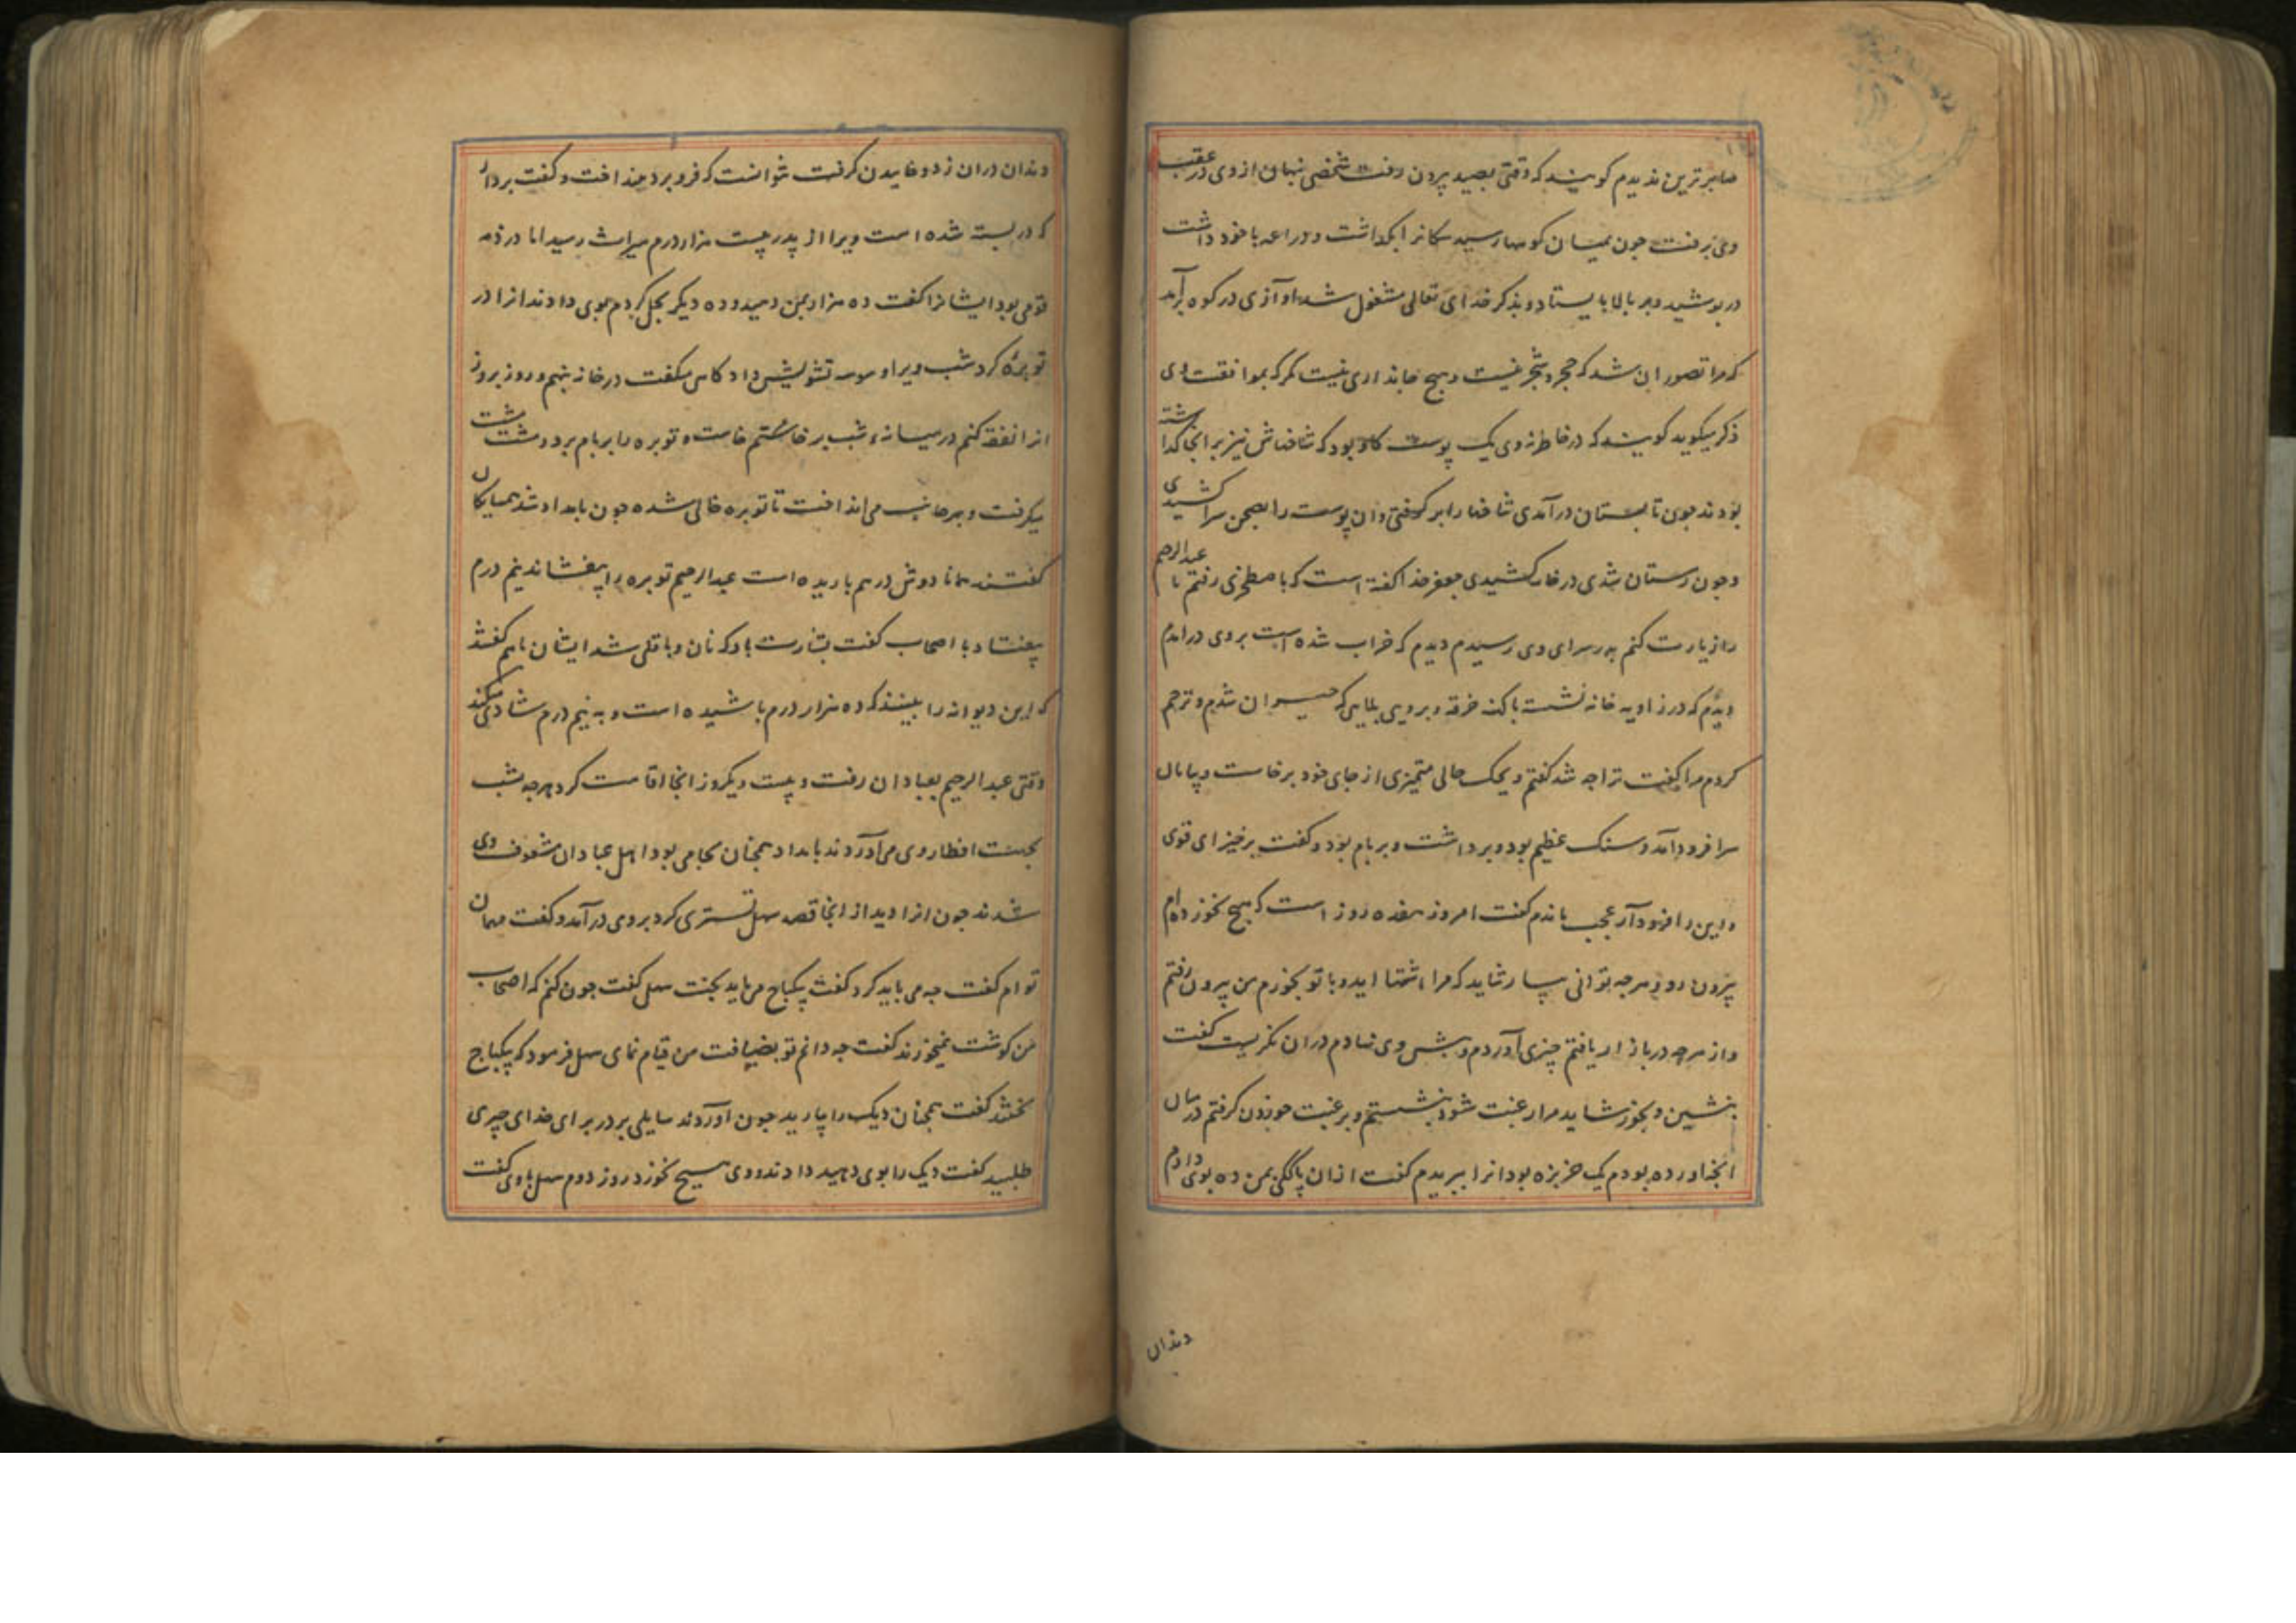 صابرترین ندیدم کویند که وقتی بصید بیرون رفت شخصی پنهان از وی در عقب
وی برفت جون بمیان کوهها رسید سکانرا بکذاشت و دراعه با خود داشت
درپوشید و بر بالا بایستاد و بذکر خدای تعالی مشغول شد اوازی در کوه برآمد
که مرا تصور ان شد که حجر و شجر نیست و هیچ جانداری نیست مکر که بموافقت وی
ذکر میکوید کویند که در خاطر وی یک پوست کاو بود که شاخهاش نیز بر انجا کذاشته
بودند جون تابستان درآمدی شاخها را برکرفتی و ان پوست را بصحن سرا کشیدی
و جون زمستان شدی در خانه کشیدی جعفر حذا کفته است که باصطخری رفتم تا عبدالرحیم
را زیارت کنم بدر سرای وی رسیدم دیدم که خراب شده است بروی درامدم
دیدم که در زاویه خانه نشسته با کهنه خرقه و بر وی بلایی که حیران شدم و ترحم
کردم مرا کفت ترا چه شد کفتم ویحک حالی متحیری از جای خود برخاست و بپایان
سرا فرود آمد و سنک عظیم بود و برداشت و بر بام بود و کفت برخیز ای قوی
و این را فرود آر عجب ماندم کفت امروز هفده روز است که هیچ نخورده‌ام
بیرون رو و هرچه توانی بیار شاید که مرا اشتها اید و با تو بخورم من بیرون رفتم
و از هرچه در بازار یافتم چیزی آوردم و پیش وی نهادم دران نکریست کفت
بنشین و بخور شاید مرا رغبت شود بنشستم و برغبت خوردن کرفتم درمیان
انچه اورده بودم یک خربزه بود انرا ببریدم کفت ازان پاککی بمن ده بوی دادم
دندان
دندان دران زد و خاییدن کرفت نتوانست که فرو برد بینداخت و کفت بردار
که در بسته شده است ویرا از پدر بیست هزار درم میراث رسید اما در ذمه
قومی بود ایشانرا کفت ده هزار بمن دهید و ده دیکر بحل کردم بوی دادند انرا در
توبره کرد شب ویرا وسوسه تشویش داد کاهی میکفت در خانه بنهم و روز بروز
انرا نفقه کنم در میانه شب برخاستم خاست و توبره را بر بام برد و مشت مشت
میکرفت و بهر جانب می‌انداخت تا توبره خالی شده جون بامداد شد همسایکان
کفتند همانا دوش درهم باریده است عبدالرحیم توبره را بیفشاند نیم درم
بیفتاد با اصحاب کفت بشارت باد که نان و باقلی شد ایشان باهم کفتند
که این دیوانه را ببینید که ده هزار درم پاشیده است و به نیم درم شادی میکند
وقتی عبدالرحیم بعبادان رفت و بیست و یکروز انجا اقامت کرد هرچه شب
بجهت افطار وی می‌آوردند بامداد همچنان بجا می بود اهل عبادان مشعوف وی
شدند جون انرا دید از انجا قصد سهل تستری کرد بروی درآمد و کفت مهمان
توام کفت چه می باید کرد کفت سکباج می‌باید پخت سهل کفت جون کنم که اصحاب
من کوشت نمیخورند کفت چه دانم تو بضیافت من قیام نمای سهل فرمود که سکباج
پختند کفت همچنان دیک را بیارید جون اوردند سایلی بر در برای خدای چیزی
طلبید کفت دیک را بوی دهید دادند و وی هیچ نخورد روز دوم سهل با وی کفت